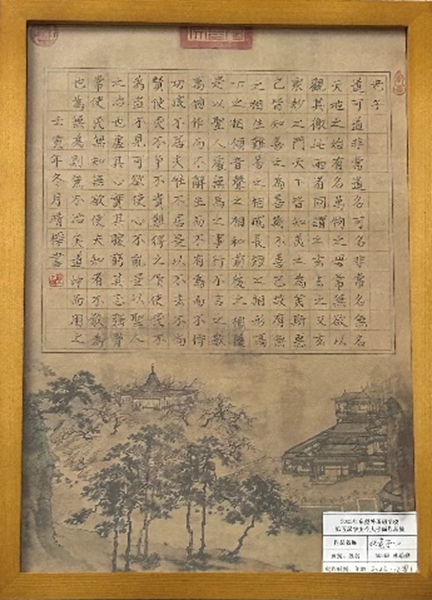 老子
道可道非常道名可名非常名無名
天地之始有名萬物之母常無欲以
觀其徼此兩者同謂之玄玄之又玄
衆妙之門天下皆知美之為美斯惡
已皆知善之為善斯不善已故有無
之相生難易之相成長短之相形高
下之相傾音聲之相和前後之相隨
是以聖人處無為之事行不言之教
萬物作而不辭生而不有為而不恃
功成不居夫唯不居是以不去不尚
賢使民不爭不貴難得之貨使民不
為盜不見可欲使心不亂是以聖人
之治也虛其心實其腹弱其志強骨
常使民無知無欲使夫知者不敢為
也為無為則無不治矣道沖而用之
壬寅年冬月晴書
作品名称